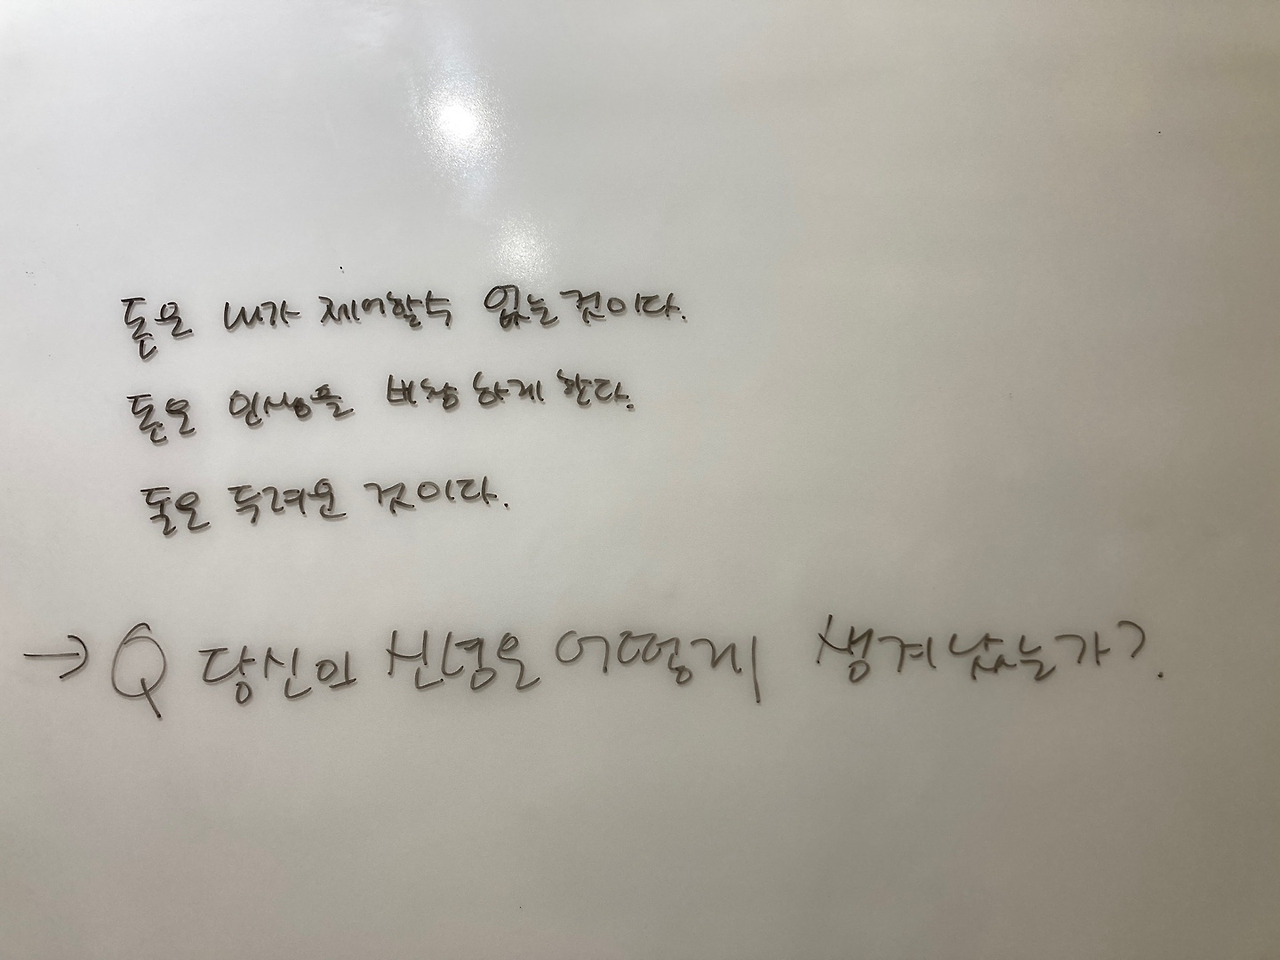 돈은 내가 제어할수 없는 것이다.
돈은 인생을 비참하게 한다.
돈은 두려운 것이다.
→ Q 당신의 신념은 어떻게 생겨났는가?